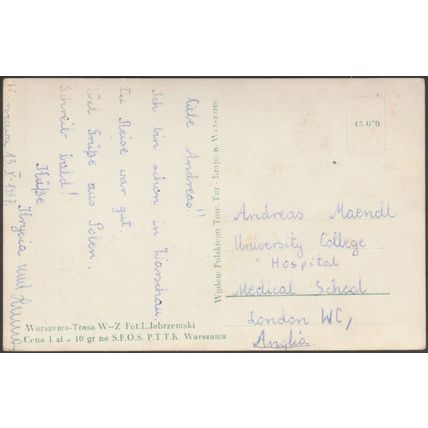 Liebe Andreas!!
Ich bin schon in Warschau.
Die Reise war gut.
Viel Grüße aus Polen.
Schreib bald!
Küße
Krysia und
Warszawa 13 V 1957
Wydaw Polskiego Tow. Tur. Krajozn. Warszawa
15-070
Andreas Maendl
University College
Hospital
Medical School
London WC,
Anglia.
Warszawa-Trasa W-Z Fot. L. Jabrzemski
Cena 1 zł + 10 gr na S.F.O.S. P.T.T.K. Warszawa